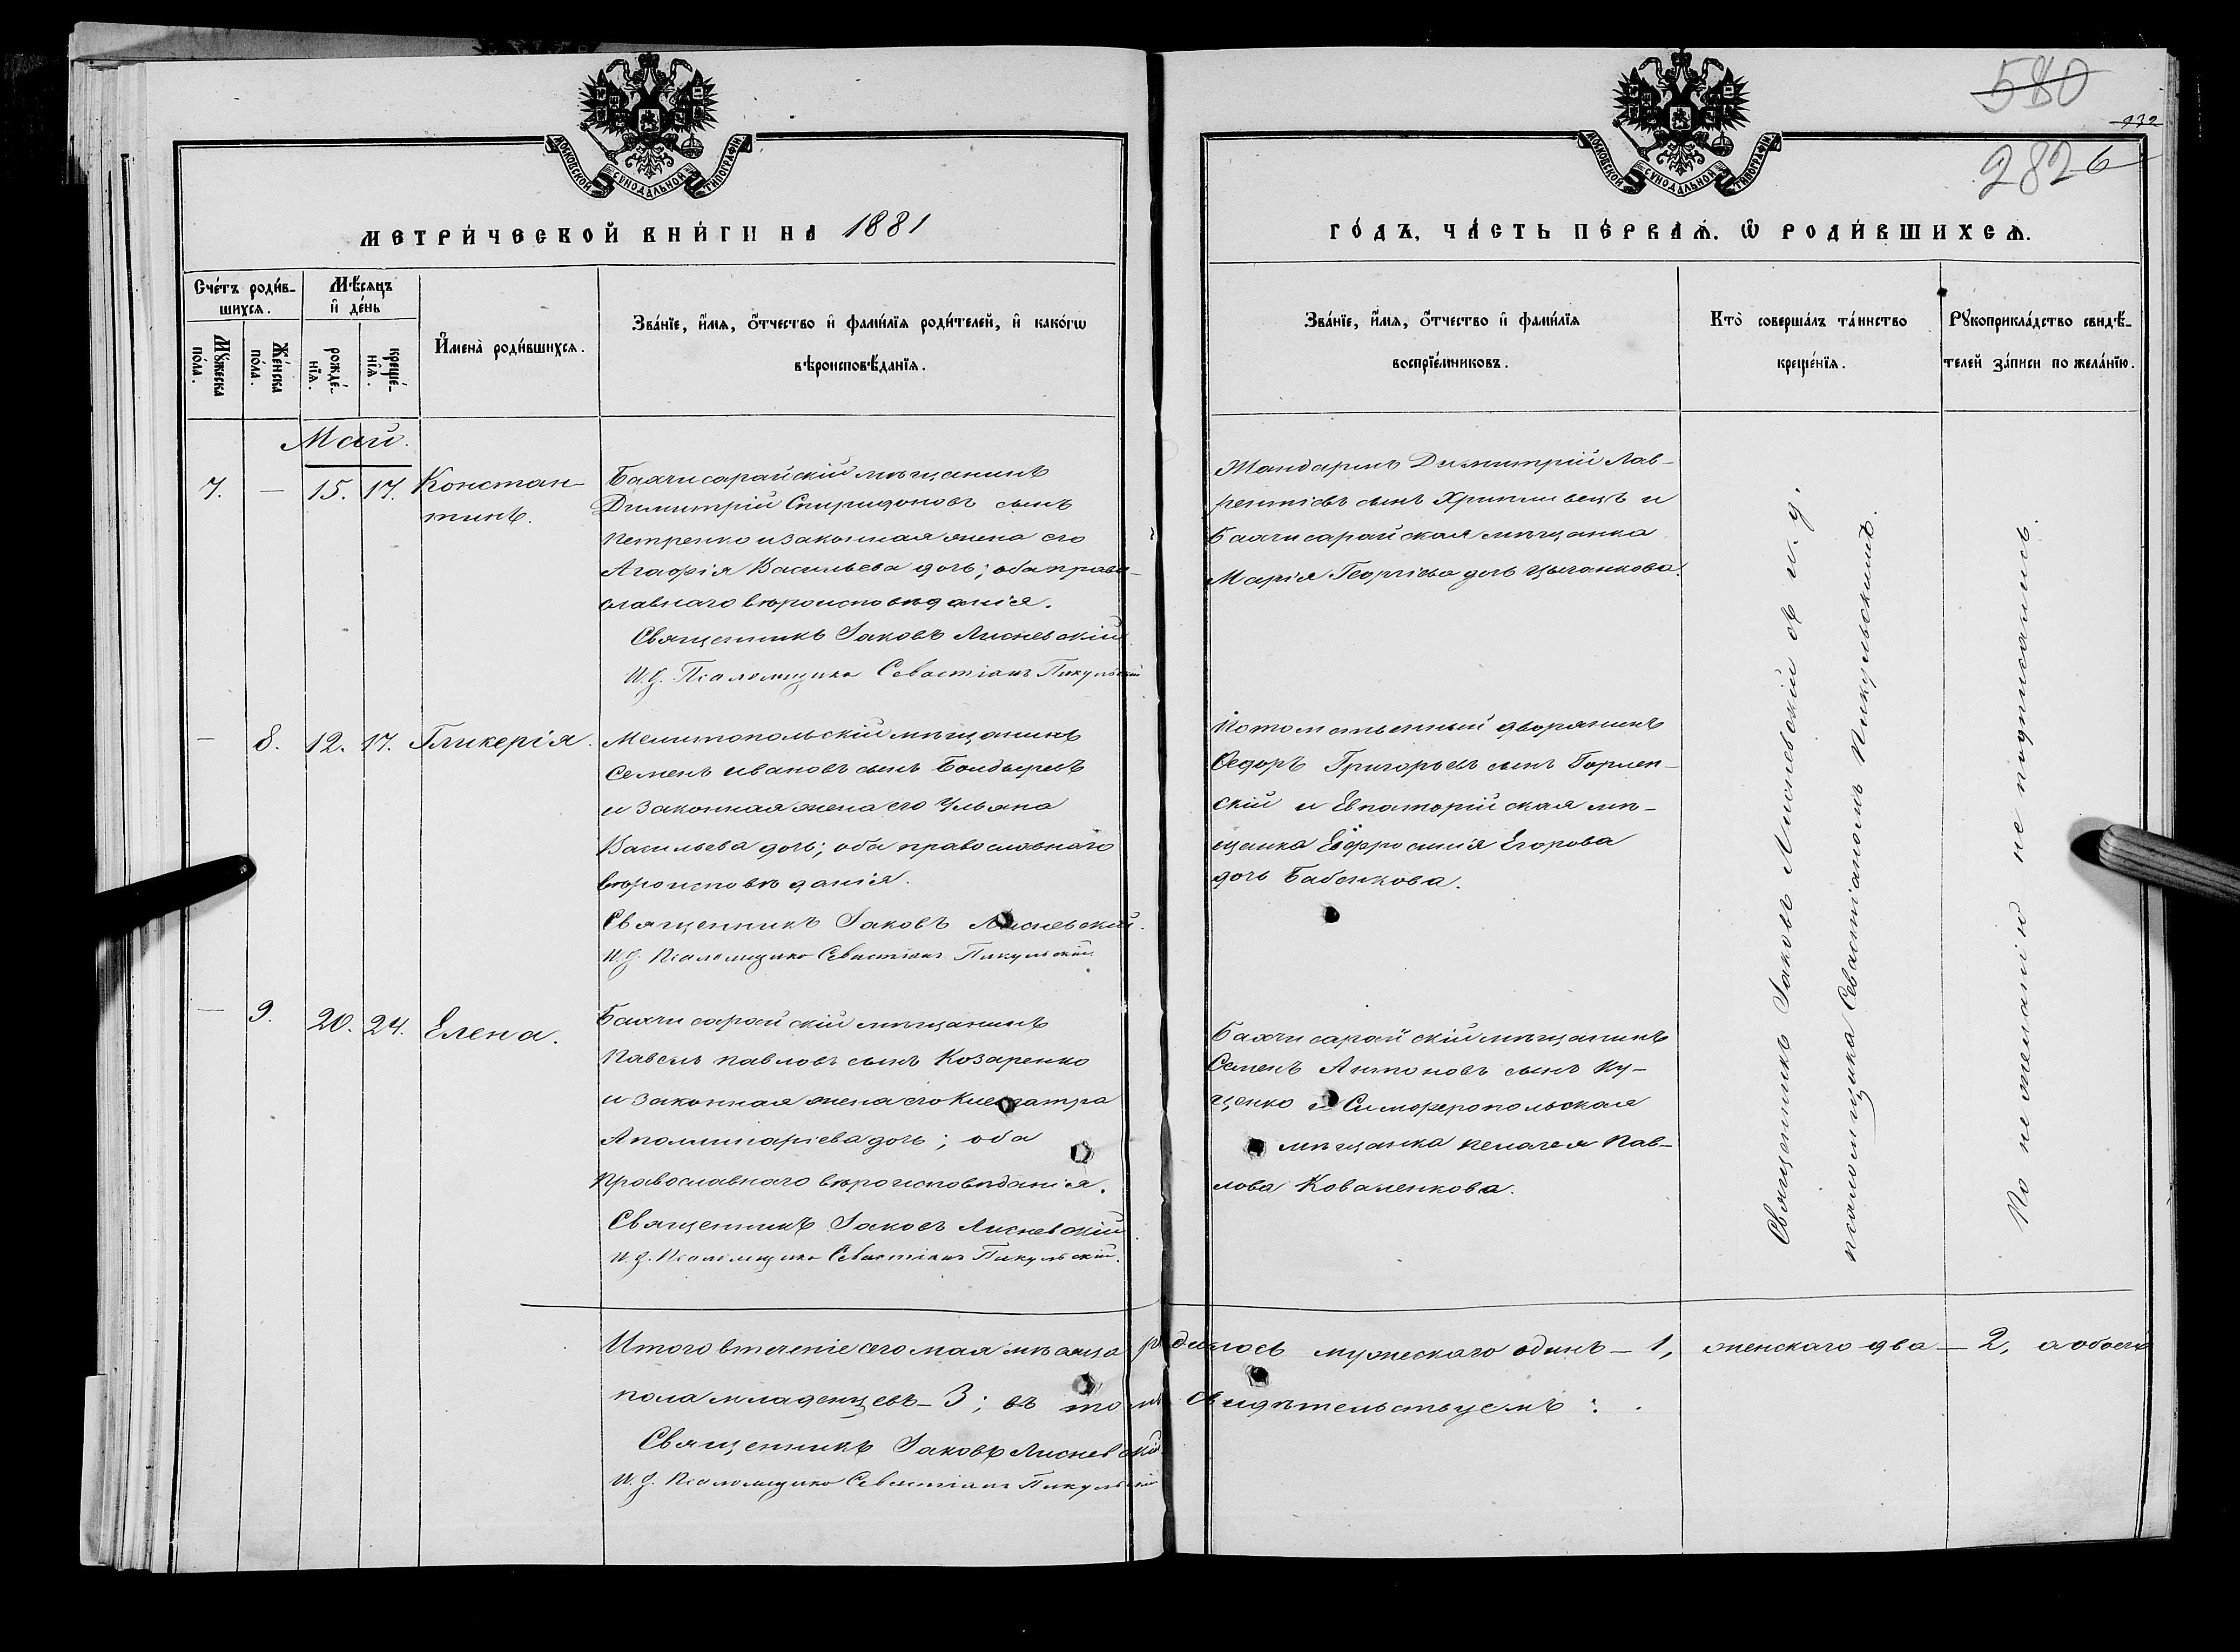 580
232
2826
МОСКОВСКОЙ СѴНОДАЛЬНОЙ ТИПОГРАФІИ
МОСКОВСКОЙ СѴНОДАЛЬНОЙ ТИПОГРАФІИ
МЕТРИ́ЧЕСКОЙ КНИ́ГИ НА 1881
ГО́ДЪ, ЧА́СТЬ ПЕ́РВАѦ, Ѡ҆ РОДИ́ВШИХСѦ.
Сче́тъ роди́в-
шихсѧ.
Мꙋ́жеска
по́ла.
Же́нска
по́ла.
Мѣ́сѧцъ
и҆ де́нь
рожде́-
нїѧ.
креще́-
нїѧ.
И҆мена̀ роди́вшихсѧ.
Зва́нїе, и҆́мѧ, ѻ҆́тчество и҆ фами́лїѧ роди́телей, и҆ како́гѡ
вѣроисповѣ́данїѧ.
Зва́нїе, и҆́мѧ, ѻ҆́тчество и҆ фами́лїѧ
воспрїе́мниковъ.
Кто̀ соверша́лъ та́инство
креще́нїѧ.
Рꙋкоприкла́дство свидѣ́-
телей за́писи по жела́нїю.
Май.
7. — 15. 17. Констан-
тинъ.
Бахчисарайскій мѣщанинъ
Димитрій Спиридоновъ сынъ
Петренко и законная жена его
Агафія Васильева дочь; оба право-
славнаго вѣроисповѣданія.
Священникъ Іаковъ Лисневскій
И. д. Псаломщика Севастіанъ Пикульскій
Жандармъ Димитрій Лав-
рентіевъ сынъ Хрипливецъ и
Бахчисарайская мѣщанка
Марія Георгіева дочь Цыганкова.
— 8. 12. 17. Гликерія.
Мелитопольскій мѣщанинъ
Семенъ Ивановъ сынъ Болдыревъ
и законная жена его Ульяна
Васильева дочь; оба православнаго
вѣроисповѣданія.
Священникъ Іаковъ Лисневскій.
И. д. Псаломщика Севастіанъ Пикульскій.
Потомственный дворянинъ
Ѳедоръ Григорьевъ сынъ Горлен-
скій и Евпаторійская мѣ-
щанка Ефросинія Егорова
дочь Бабенкова.
— 9. 20. 24. Елена.
Бахчисарайскій мѣщанинъ
Павелъ Павловъ сынъ Козаренко
и законная жена его Клеопатра
Аполлинаріева дочь; оба
православнаго вѣроисповѣданія.
Священникъ Іаковъ Лисневскій.
И. д. Псаломщика Севастіанъ Пикульскій.
Бахчисарайскій мѣщанинъ
Семенъ Антоновъ сынъ Ку-
ценко и Симферопольская
мѣщанка Пелагея Пав-
лова Коваленкова.
Священникъ Іаковъ Лисневскій съ и. д.
псаломщика Севастіаномъ Пикульскимъ.
По нежеланію не подписались.
Итого втеченіе сего мая мѣсяца родилось мужескаго одинъ — 1, женскаго два — 2, а обоего
пола младенцевъ — 3; въ томъ свидѣтельствуемъ:
Священникъ Іаковъ Лисневскій
И. д. Псаломщика Севастіанъ Пикульскій